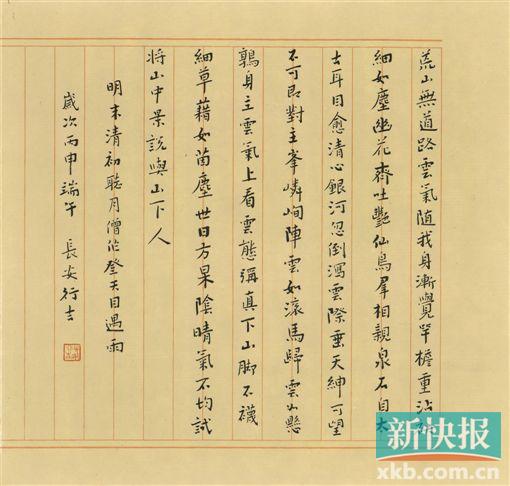 荒山無道路雲氣随我身漸覺罕檐重沾
細如塵幽花齊吐艷仙鳥羣相親泉石自太
去耳目愈清心銀河忽倒瀉雲際垂天紳可望
不可即對主峯嶙峋陣雲如滚馬歸雲懸
鶉身主雲氣上看雲態真下山脚不襪
細草藉如茵塵世日方杲陰晴氣不均試
將山中景說與山下人
明末清初聽月僧作登天目遇雨
歲次丙申端午 長安行吉
新快报
xkb.com.cn